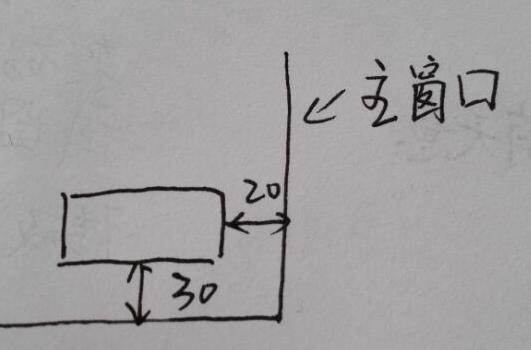 主窗口
20
30